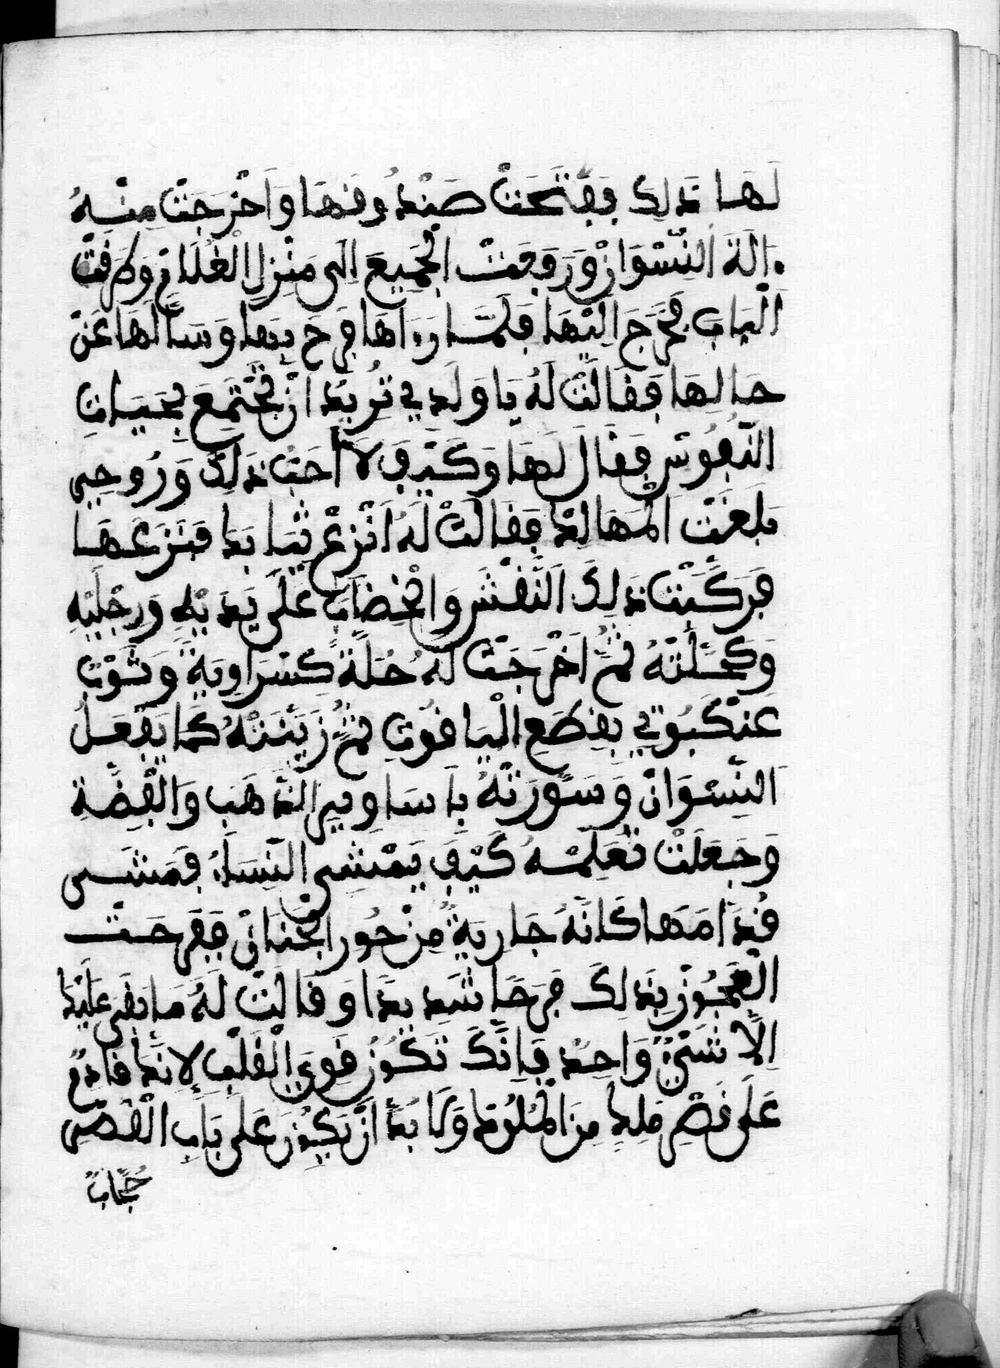 لَهَا ذَلِكَ فَفَتَحَتْ صَنْدُوقَهَا وَأَخْرَجَتْ مِنْهُ
ءَالَةَ النِّسْوَانْ وَرَفَعَتْ الْجَمِيعَ اِلَى مَنْزِلِ الْغُلَامْ وَطَرَقَتْ
الْبَابَ فَخَرَجَ اِلَيْهَا فَلَمَّا رَءَاهَا فَرِحَ بِهَا وَسَأَلَهَا عَنْ
حَالِهَا فَقَالَتْ لَهُ يَا وَلَدِي تُرِيدُ اَنْ تَجْتَمِعَ بِحَيَاتِ
النُّفُوسْ فَقَالَ لَهَا وَكَيْفَ لَا أُحِبُّ ذَلِكَ وَرُوحِي
بَلَغَتْ الْمَهَالِكْ فَقَالَتْ لَهُ اَنْزِعْ ثِيَابَكَ فَنَزَعَهَا
فَرَكَّبَتْ ذَلِكَ النَّقْشَ وَالْخِضَابَ عَلَى يَدَيْهِ وَرِجْلَيْهِ
وَكَحَّلَتْهُ ثُمَّ اَخْرَجَتْ لَهُ حُلَّةً كَسْرَاوِيَةً وَثَوْبَ
عَنْكَبُوتِي بِقِطَعِ الْيَاقُوتِ ثُمَّ زَيَّنَتْهُ كَمَا يَفْعَلُ
النِّسْوَانْ وَسَوَّرَتْهُ بِأَسَاوِيرِ الذَّهَبِ وَالْفِضَّةِ
وَجَعَلَتْ تُعَلِّمُهُ كَيْفَ يَمْشِي النِّسَاءُ فَمَشَى
قُدَّامَهَا كَأَنَّهُ جَارِيَةٌ مِنْ حُورِ الْجِنَانْ فَفَرِحَتْ
الْعَجُوزْ بِذَلِكَ فَرَحًا شَدِيدًا وَقَالَتْ لَهُ مَا بَقِيَ عَلَيْكَ
اِلَّا شَيْءٌ وَاحِدْ فَاِنَّكَ تَكُونُ قَوِيَ الْقَلْبِ لِاَنَّكَ قَادِمٌ
عَلَى قَصْرِ مَلِكٍ مِنَ الْمُلُوكْ وَلَا بُدَّ اَنْ يَكُونَ عَلَى بَابِ الْقَصْرِ
حُجَّابٌ